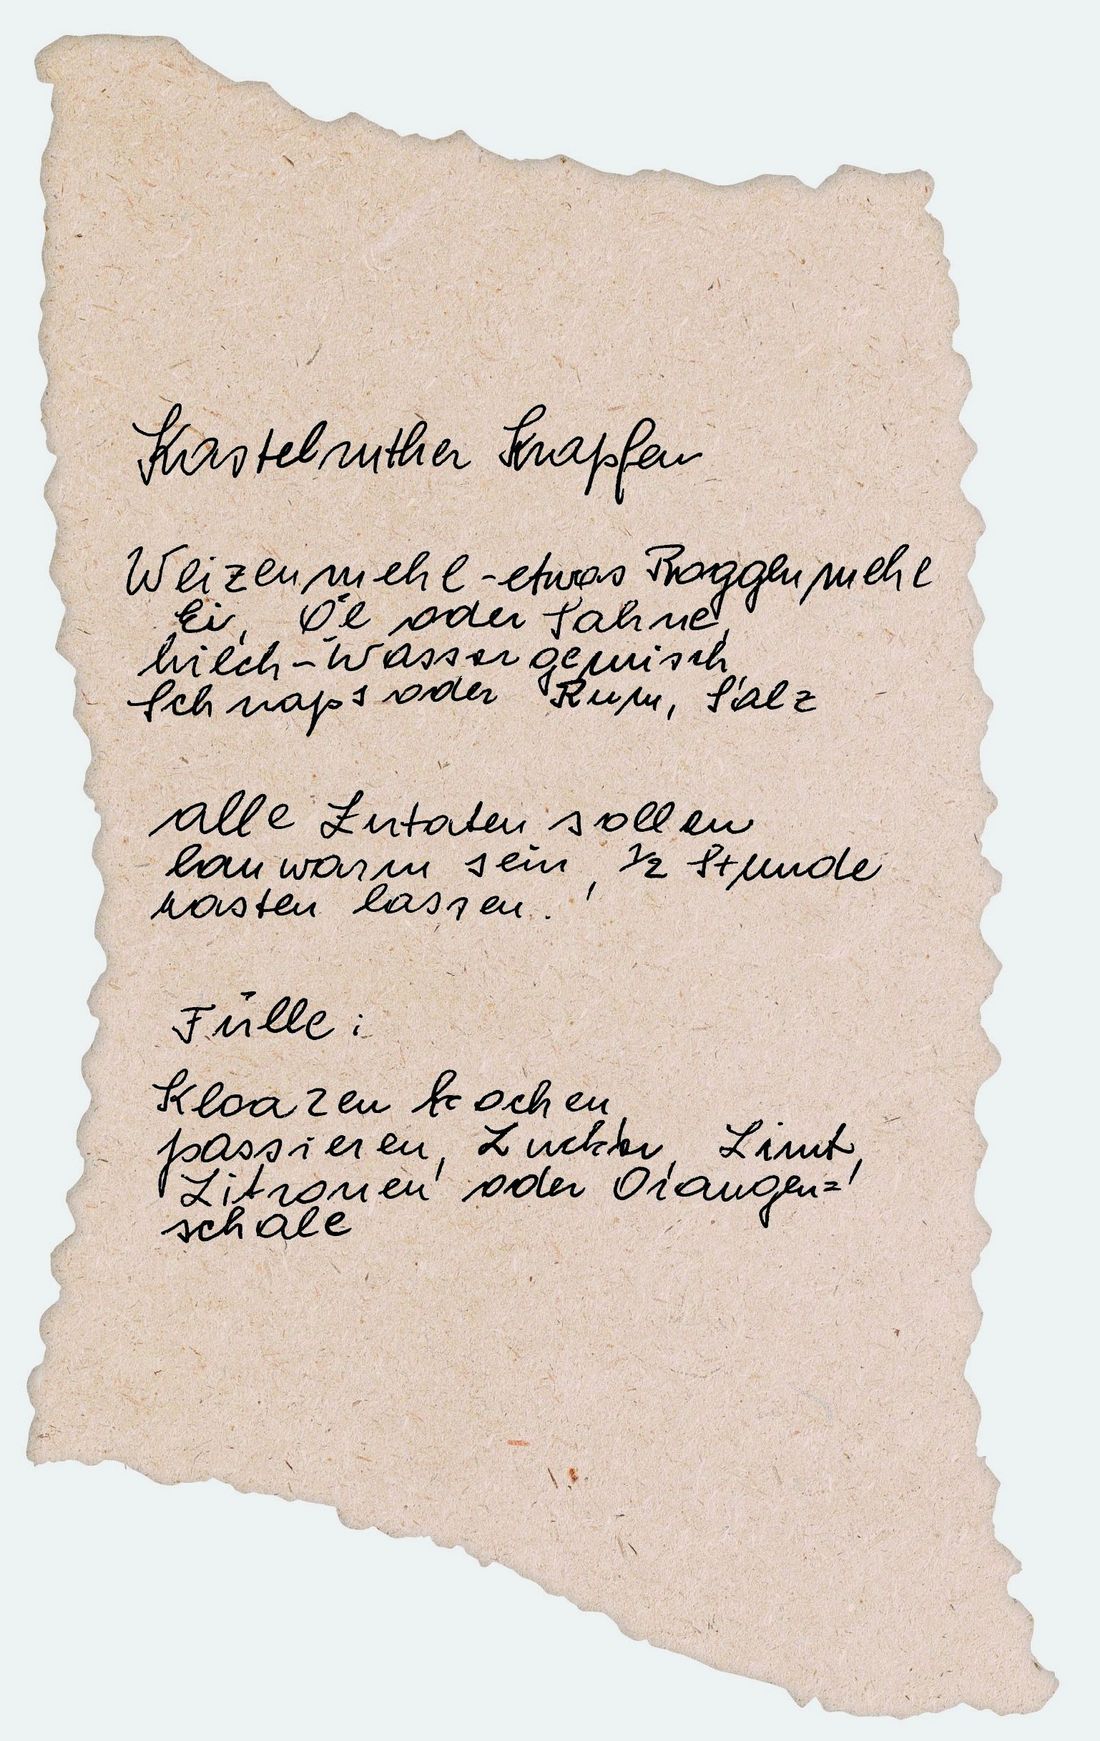 Kastelruther Krapfen
Weizenmehl - etwas Roggenmehl
Ei, Öl oder Sahne,
Milch-Wassergemisch
Schnaps oder Rum, Salz
alle Zutaten sollen
lauwarm sein, 1/2 Stunde
rasten lassen.
Fülle:
Kloazen kochen,
passieren, Zucker, Zimt,
Zitronen oder Orangen=
schale